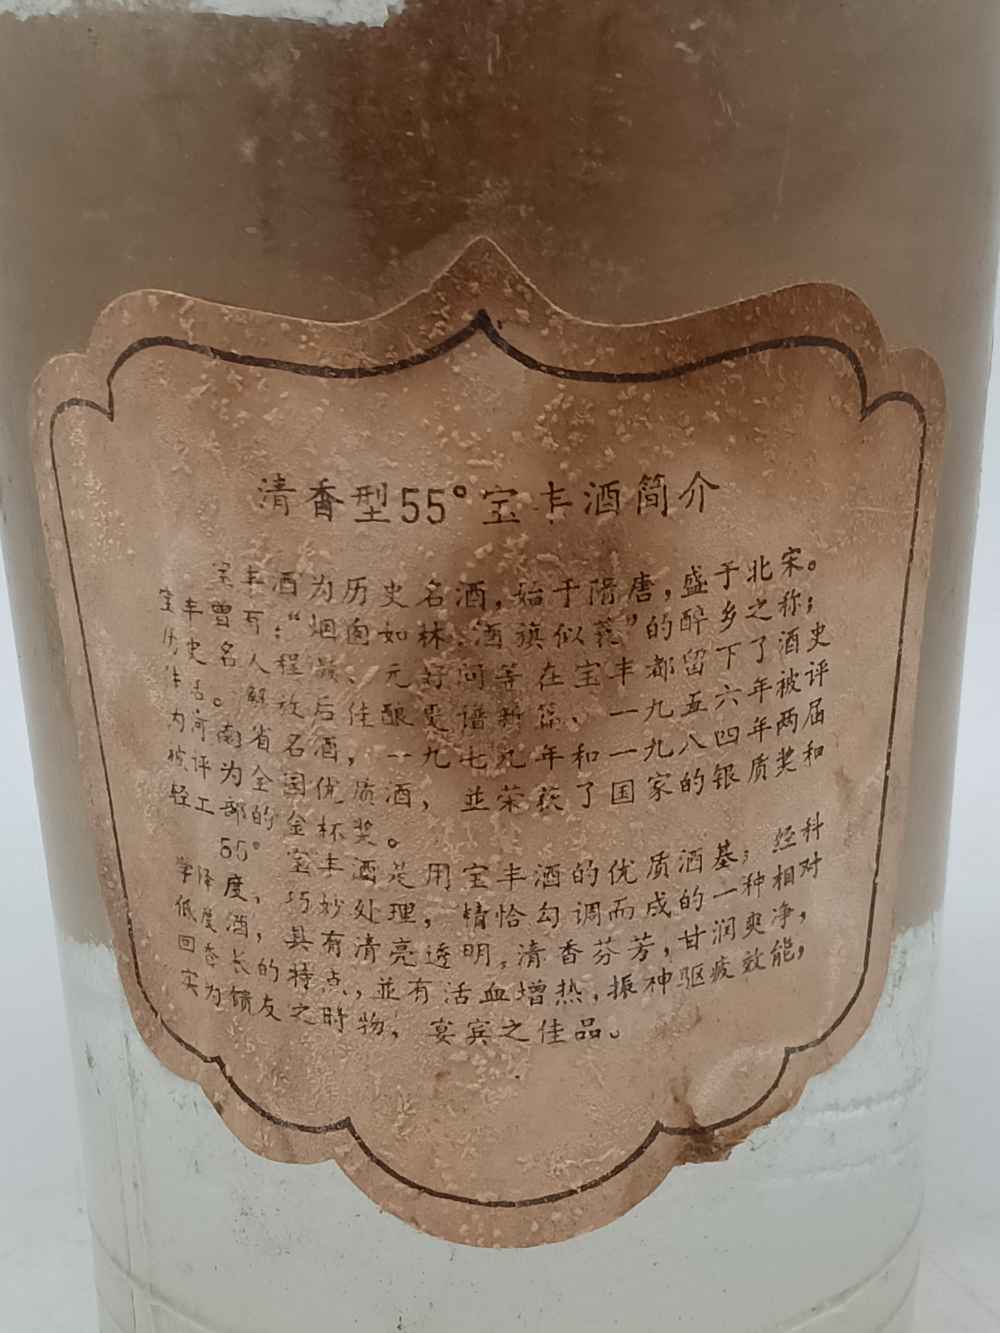 清香型55°宝丰酒简介
宝丰酒为历史名酒，始于隋唐，盛于北宋。
宝丰曾有：“烟囱如林，酒旗似花”的醉乡之称；
历史名人程颢、元好问等在宝丰都留下了酒史
佳话。解放后佳酿更谱新篇，一九五六年被评
为河南省名酒，一九七九年和一九八四年两届
被评为全国优质酒，並荣获了国家的银质奖和
轻工部的金杯奖。
55°宝丰酒是用宝丰酒的优质酒基，经科
学降度，巧妙处理，精恰勾调而成的一种相对
低度酒，具有清亮透明，清香芬芳，甘润爽净，
回香长的特点，並有活血增热，振神驱疲效能，
实为馈友之時物，宴宾之佳品。